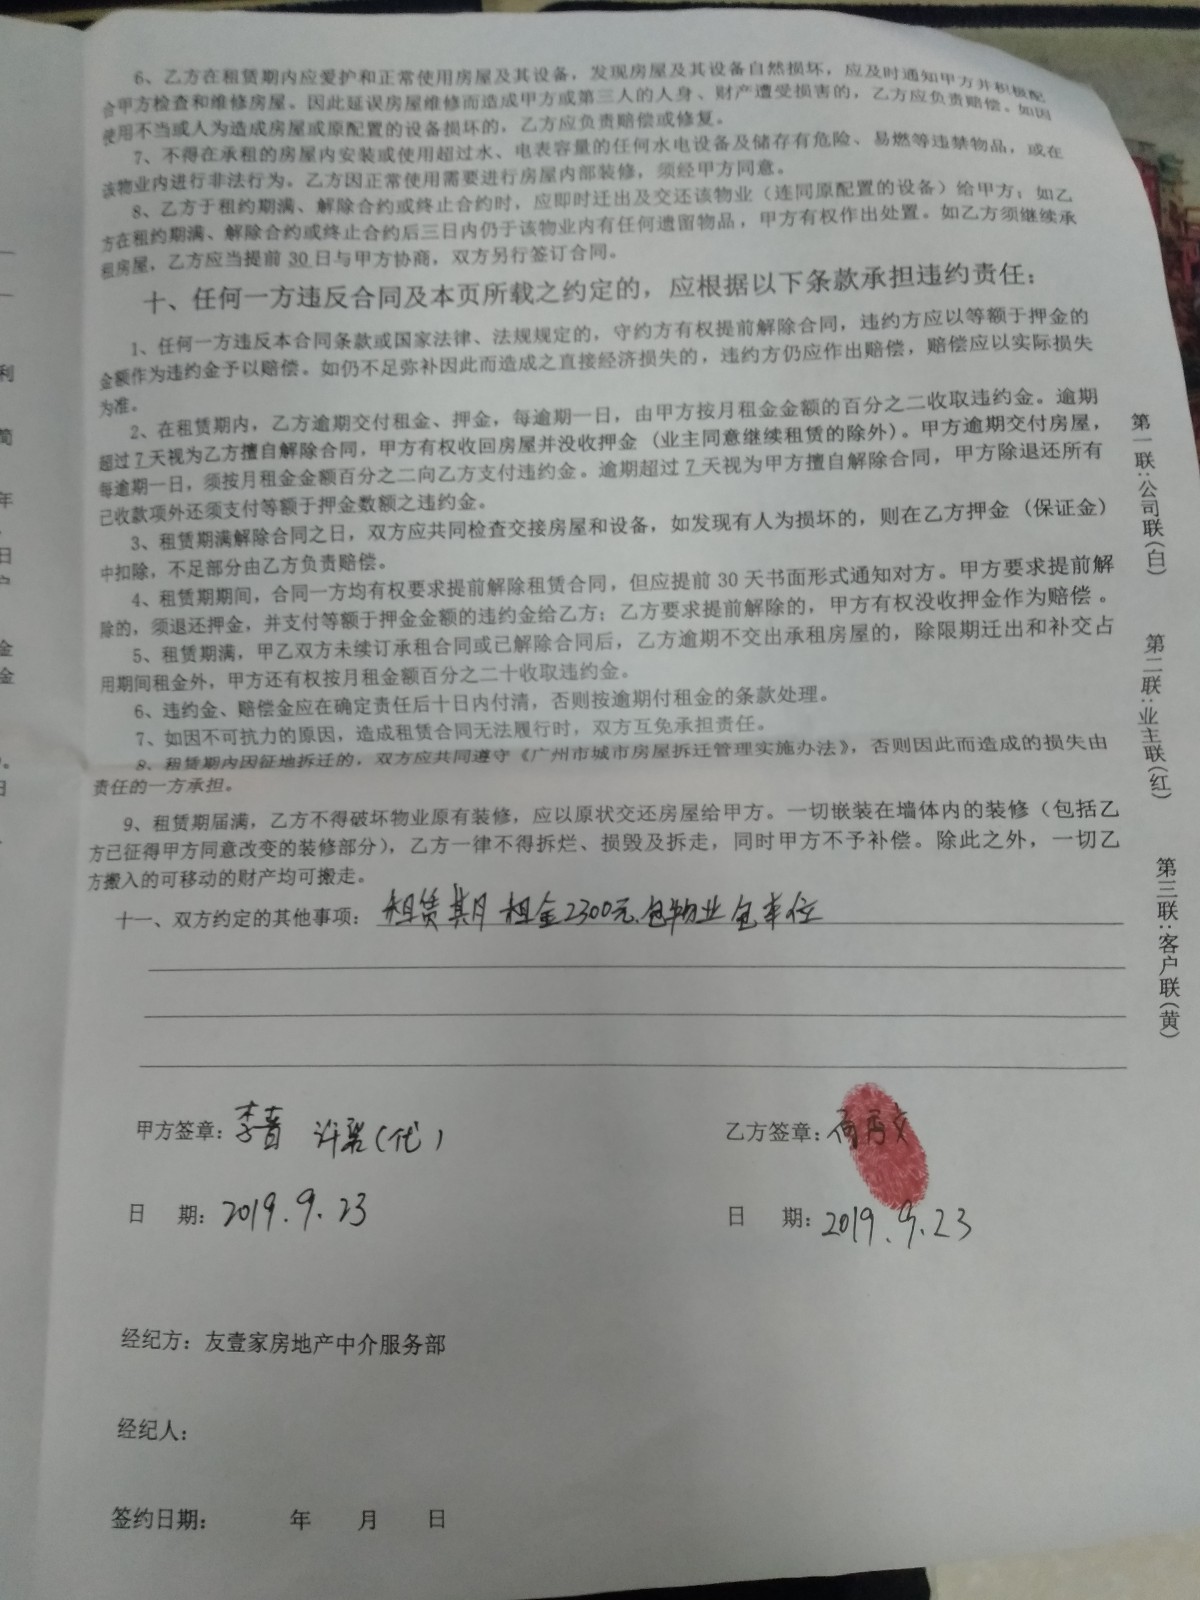 6、乙方在租赁期内应爱护和正常使用房屋及其设备，发现房屋及其设备自然损坏，应及时通知甲方并积极配
合甲方检查和维修房屋。因此延误房屋维修而造成甲方或第三人的人身、财产遭受损害的，乙方应负责赔偿。如因
使用不当或人为造成房屋或原配置的设备损坏的，乙方应负责赔偿或修复。
7、不得在承租的房屋内安装或使用超过水、电表容量的任何水电设备及储存有危险、易燃等违禁物品，或在
该物业内进行非法行为。乙方因正常使用需要进行房屋内部装修，须经甲方同意。
8、乙方于租约期满、解除合约或终止合约时，应即时迁出及交还该物业（连同原配置的设备）给甲方；如乙
方在租约期满、解除合约或终止合约后三日内仍于该物业内有任何遗留物品，甲方有权作出处置。如乙方须继续承
租房屋，乙方应当提前 30 日与甲方协商，双方另行签订合同。
十、任何一方违反合同及本页所载之约定的，应根据以下条款承担违约责任：
1、任何一方违反本合同条款或国家法律、法规规定的，守约方有权提前解除合同，违约方应以等额于押金的
金额作为违约金予以赔偿。如仍不足弥补因此而造成之直接经济损失的，违约方仍应作出赔偿，赔偿应以实际损失
为准。
2、在租赁期内，乙方逾期交付租金、押金，每逾期一日，由甲方按月租金金额的百分之二收取违约金。逾期
超过 7 天视为乙方擅自解除合同，甲方有权收回房屋并没收押金（业主同意继续租赁的除外）。甲方逾期交付房屋，
每逾期一日，须按月租金金额百分之二向乙方支付违约金。逾期超过 7 天视为甲方擅自解除合同，甲方除退还所有
已收款项外还须支付等额于押金数额之违约金。
3、租赁期满解除合同之日，双方应共同检查交接房屋和设备，如发现有人为损坏的，则在乙方押金（保证金）
中扣除，不足部分由乙方负责赔偿。
4、租赁期期间，合同一方均有权要求提前解除租赁合同，但应提前 30 天书面形式通知对方。甲方要求提前解
除的，须退还押金，并支付等额于押金金额的违约金给乙方；乙方要求提前解除的，甲方有权没收押金作为赔偿。
5、租赁期满，甲乙双方未续订承租合同或已解除合同后，乙方逾期不交出承租房屋的，除限期迁出和补交占
用期间租金外，甲方还有权按月租金额百分之二十收取违约金。
6、违约金、赔偿金应在确定责任后十日内付清，否则按逾期付租金的条款处理。
7、如因不可抗力的原因，造成租赁合同无法履行时，双方互免承担责任。
8、租赁期内因征地拆迁的，双方应共同遵守《广州市城市房屋拆迁管理实施办法》，否则因此而造成的损失由
责任的一方承担。
9、租赁期届满，乙方不得破坏物业原有装修，应以原状交还房屋给甲方。一切嵌装在墙体内的装修（包括乙
方已征得甲方同意改变的装修部分），乙方一律不得拆烂、损毁及拆走，同时甲方不予补偿。除此之外，一切乙
方搬入的可移动的财产均可搬走。
十一、双方约定的其他事项：租赁期月租金2300元.包物业包车位
甲方签章：李 （代）
乙方签章：
日 期：2019.9.23
日 期：2019.9.23
经纪方：友壹家房地产中介服务部
经纪人：
签约日期： 年 月 日
第一联：公司联（白）
第二联：业主联（红）
第三联：客户联（黄）
利
简
年
日
户
金
金